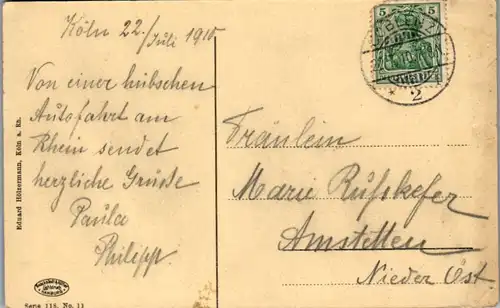 Köln 22./Juli 1910
Von einer hübschen
Autofahrt am
Rhein sendet
herzliche Grüsse
Paula
Philipp.
Fräulein
Marie Rußkefer
Amstetten
Nieder Öst
Eduard Hölzermann, Köln a. Rh.
Serie 118. No. 11
5 5
2